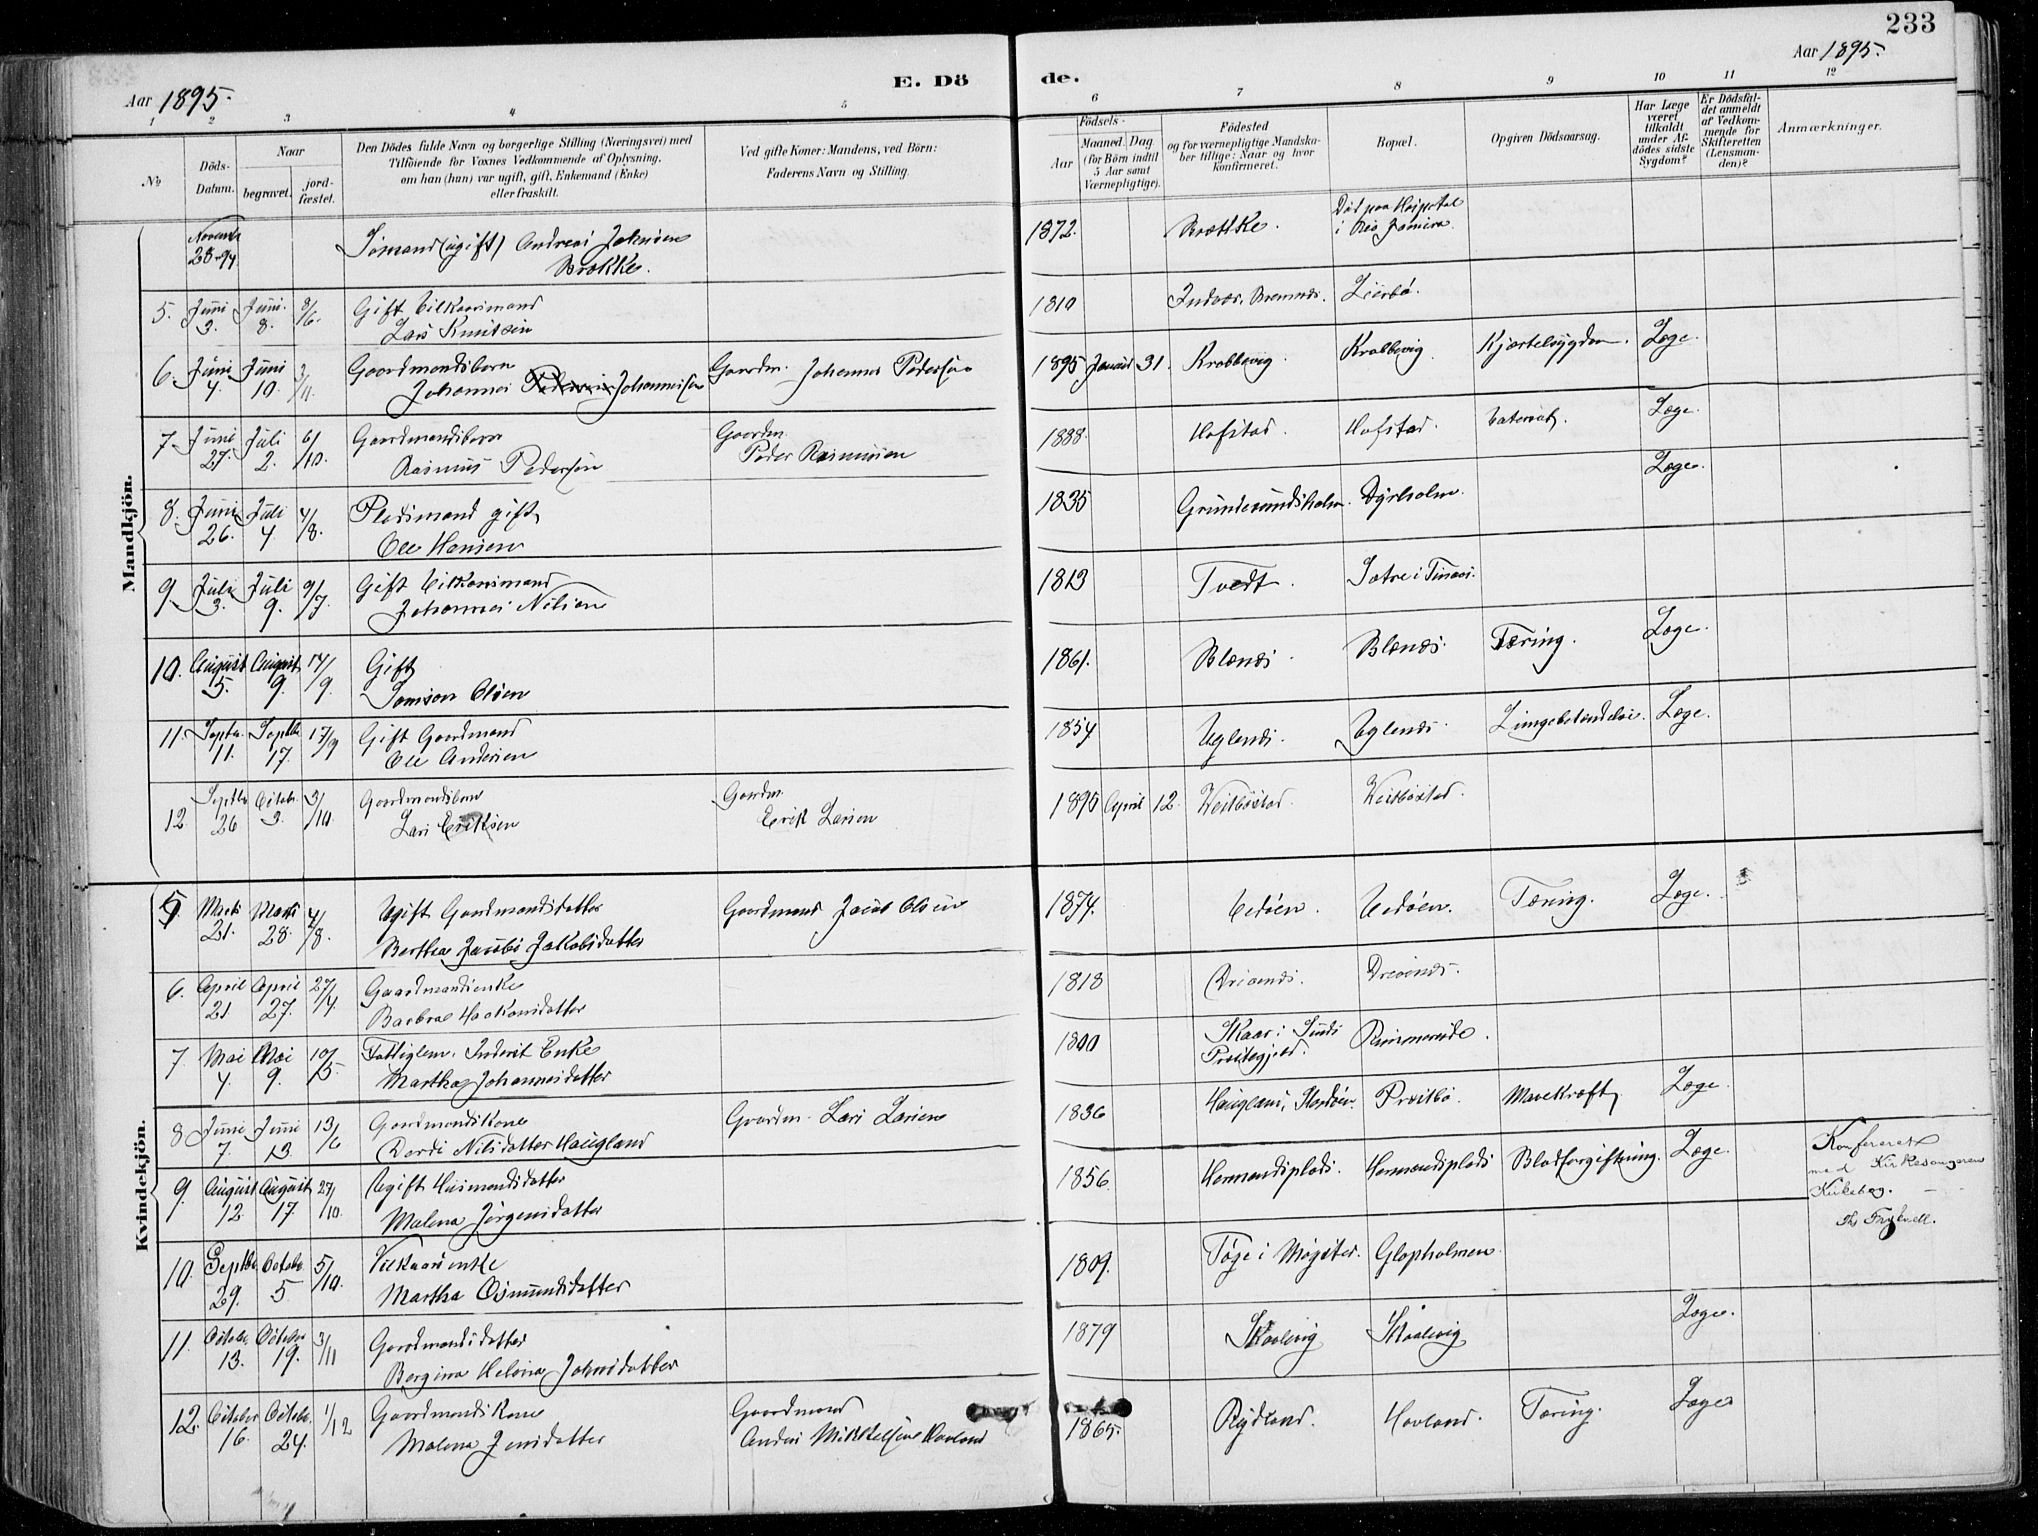 233
Aar 1895.
E. Dö
de.
Aar 1895.
1 2 3 4 5 6 7 8 9 10 11 12
No
Döds-
Datum.
Naar
begravet.
jord-
fæstet.
Den Dödes fulde Navn og borgerlige Stilling (Næringsvei) med
Tilföiende for Voxnes Vedkommende af Oplysning,
om han (hun) var ugift, gift, Enkemand (Enke)
eller fraskilt.
Ved gifte Koner: Mandens, ved Börn:
Faderens Navn og Stilling.
Födsels-
Aar
Maaned.
Dag
(for Börn indtil
5 Aar samt
Værnepligtige).
Födested
og for værnepligtige Mandska-
ber tillige: Naar og hvor
konfirmeret.
Bopæl.
Opgiven Dödsaarsag.
Har Læge
været
tilkaldt
under Af-
dödes sidste
Sygdom?
Er Dödsfal-
det anmeldt
af Vedkom-
mende for
Skifteretten
(Lensman-
den)?
Anmærkninger.
Mandkjön.
Novembr
28-94
Sömand (ugift) Andreas Johnsen
Brække.
1872. Brække. Död paa Hospital
i Rio Janeiro.
5. Juni 3. Juni 8. 8/6. Gift Vilkaarsmand
Lars Knutsen
1810
6. Juni 4. Juni 10. 3/11. Gaardmandsbarn
Johannes Pedersen Johannessen
Gaardm. Johannes Pedersen
1895 Januar 31. Krabbevig. Krabbevig. Kjertelsygdom. Læge.
7. Juni 27. Juli 2. 6/10. Gaardmandsbarn
Rasmus Pedersen
Gaardm.
Peder Rasmussen
1888. Hofstad. Hofstad. Læge.
8. Juni 26. Juli 4 4/8. Pladsmand gift
Ole Hansen
1835 Grundesundsholm. Dyrholm. Læge.
9. Juli 3. Juli 9. 9/7. Gift Vilkaarsmand
Johannes Nilsen
1813 Tvedt. Sætre i Timæs.
10. August 5. August 9. 14/9. Gift
Samson Olsen
1861. Blænes. Blænes. Tæring. Læge.
11. Septbr. 11. Septbr 17. 17/9 Gift Gaardmand
Ole Andersen
1854 Uglenes. Uglenes. Lungebetændelse. Læge.
12. Septbr 26 Octobr. 3. 3/10 Gaardmandsbarn
Lars Eriksen
Gaardm.
Erik Larsen
1895 April 12. Vestböstad. Vestböstad.
Kvindekjön.
5 Marts 21. Marts 28. 4/8. Ugift Gaardmandsdatter
Bertha Jacobs Jakobsdatter
Gaardmand Jacob Olsen
1874. Vedöen. Vedöen. Tæring. Læge.
6. April 21 April 27. 27/4. Gaardmandsenke
Barbroe Haakonsdatter
1818 Drivenes. Drevenes.
7. Mai 4. Mai 9. 10/5. Fattiglem. Inderst Enke
Martha Johannesdatter
1800 Skaar i Sunds
Præstegjeld. Rimmereide.
8 Juni 7. Juni 13. 13/6 Gaardmandskone
Dordi Nilsdatter Haugland
Gaardm. Lars Larsen
1836 Haugland, Stordöen. Præstbö. Mavekræft Læge.
9. August 12. August 17. 27/10. Ugift Husmandsdatter
Malena Jörgensdatter
1856. Hermandsplads. Hermandsplads Blodforgiftning. Læge.
Konfereret
med Kirkesangerens
Kirkebog.
10. Septbr. 29. Octobr. 5. 5/10. Vilkaarsenke
Martha Osmundsdatter
1809. Töge i Mögster. Glopholmen.
11. Octobr 13. October 19. 3/11 Gaardmandsdatter
Bergina Helena Johnsdatter
1879 Skaalevig Skaalevig Læge.
12. October 16. Octobr. 24. 1/12 Gaardmandskone
Malena Jensdatter
Gaardmand
Anders Mikkelsen Havland
1865. Rydland. Havland. Tæring. Læge